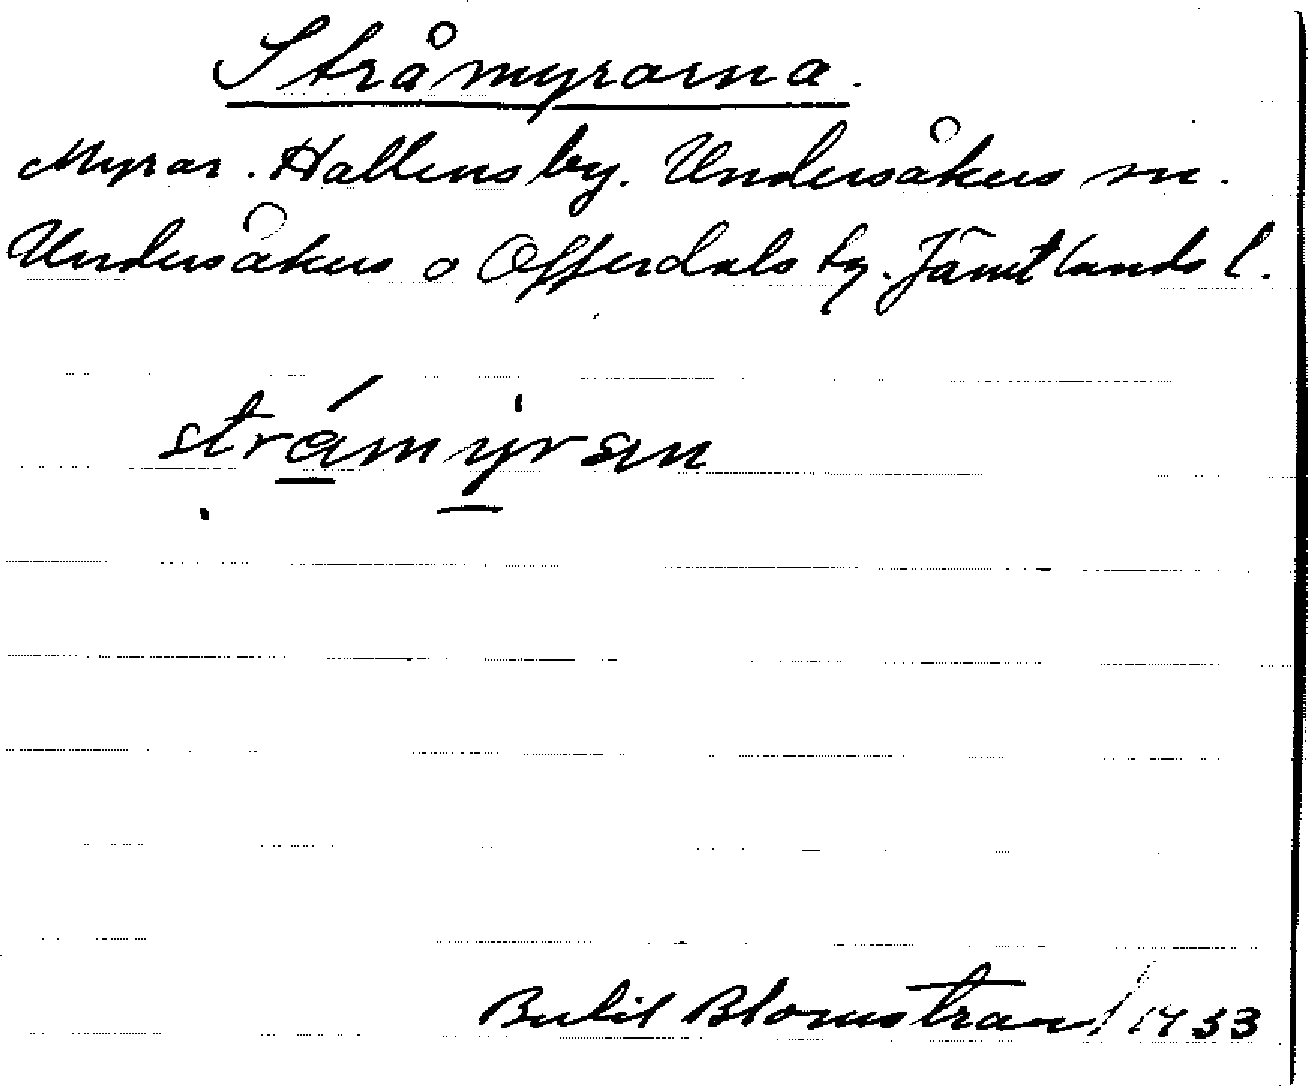 Stråmyrarna.
Myrar. Hallens by. Undersåkers sn.
Undersåkers o Offerdals tg. Jämtlands l.
strámyran
Bertil Blomstrand 1933